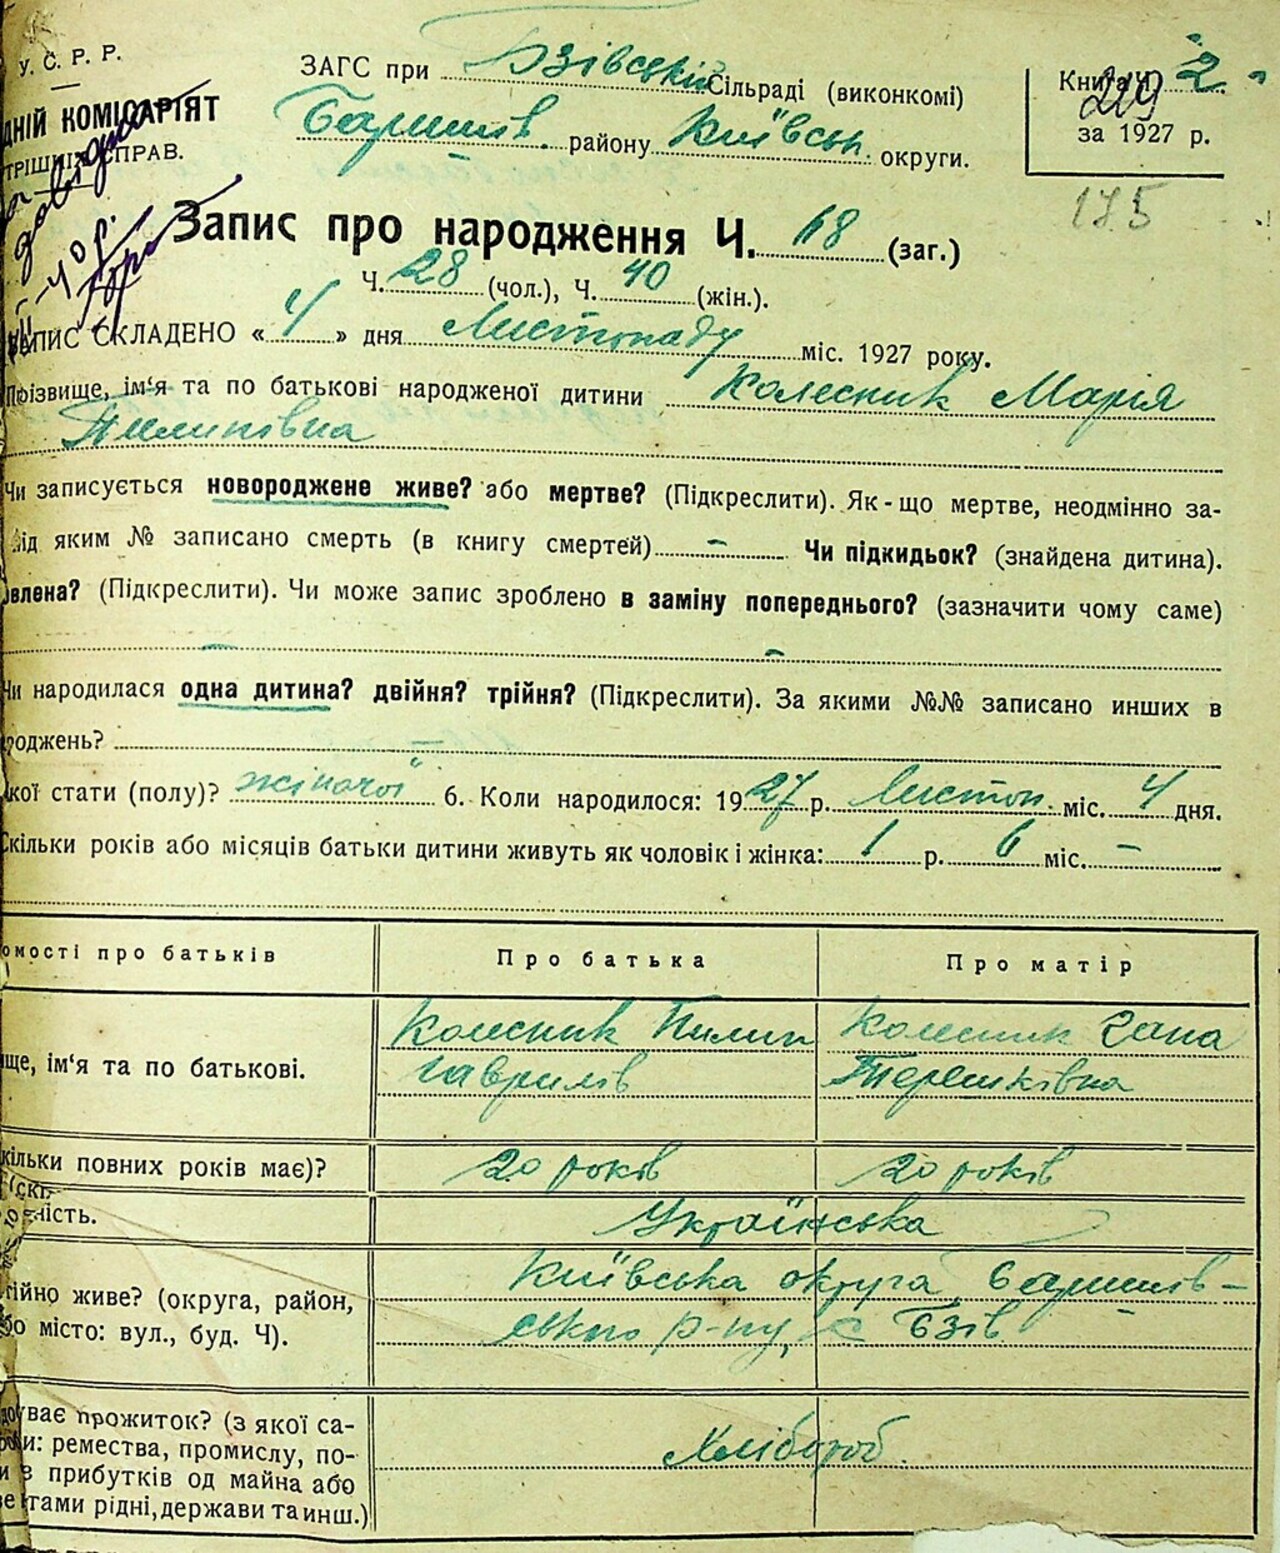 У. С. Р. Р.
ДНІЙ КОМІСАРІЯТ
ТРІШНІХ СПРАВ.
ЗАГС при Бзівській Сільраді (виконкомі)
Баришів. району Київськ. округи.
Книга Ч. 2
219
за 1927 р.
175
Запис про народження Ч. 68 (заг.)
Ч. 28 (чол.), Ч. 40 (жін.).
ЗАПИС СКЛАДЕНО « 4 » дня Листопаду міс. 1927 року.
Прізвище, ім‘я та по батькові народженої дитини Колесник Марія
Пилипівна
Чи записується новороджене живе? або мертве? (Підкреслити). Як-що мертве, неодмінно за-
від яким № записано смерть (в книгу смертей) — Чи підкидьок? (знайдена дитина).
влена? (Підкреслити). Чи може запис зроблено в заміну попереднього? (зазначити чому саме)
— —
Чи народилася одна дитина? двійня? трійня? (Підкреслити). За якими №№ записано инших в
роджень? —
кої стати (полу)? жіночої 6. Коли народилося: 1927 р. Листоп. міс. 4 дня.
Скільки років або місяців батьки дитини живуть як чоловік і жінка: 1 р. 6 міс. —
омості про батьків Про батька Про матір
ще, ім‘я та по батькові. Колесник Пилип Колесник Гана
Гаврилів Терешківна
кільки повних років має)? 20 років 20 років
ність. Українська
тійно живе? (округа, район, Київська округа Баришів-
бо місто: вул., буд. Ч). ського р-ну, с Бзів
дбуває прожиток? (з якої са-
ремества, промислу, по- Хлібороб.
и з прибутків од майна або
тами рідні, держави та инш.)